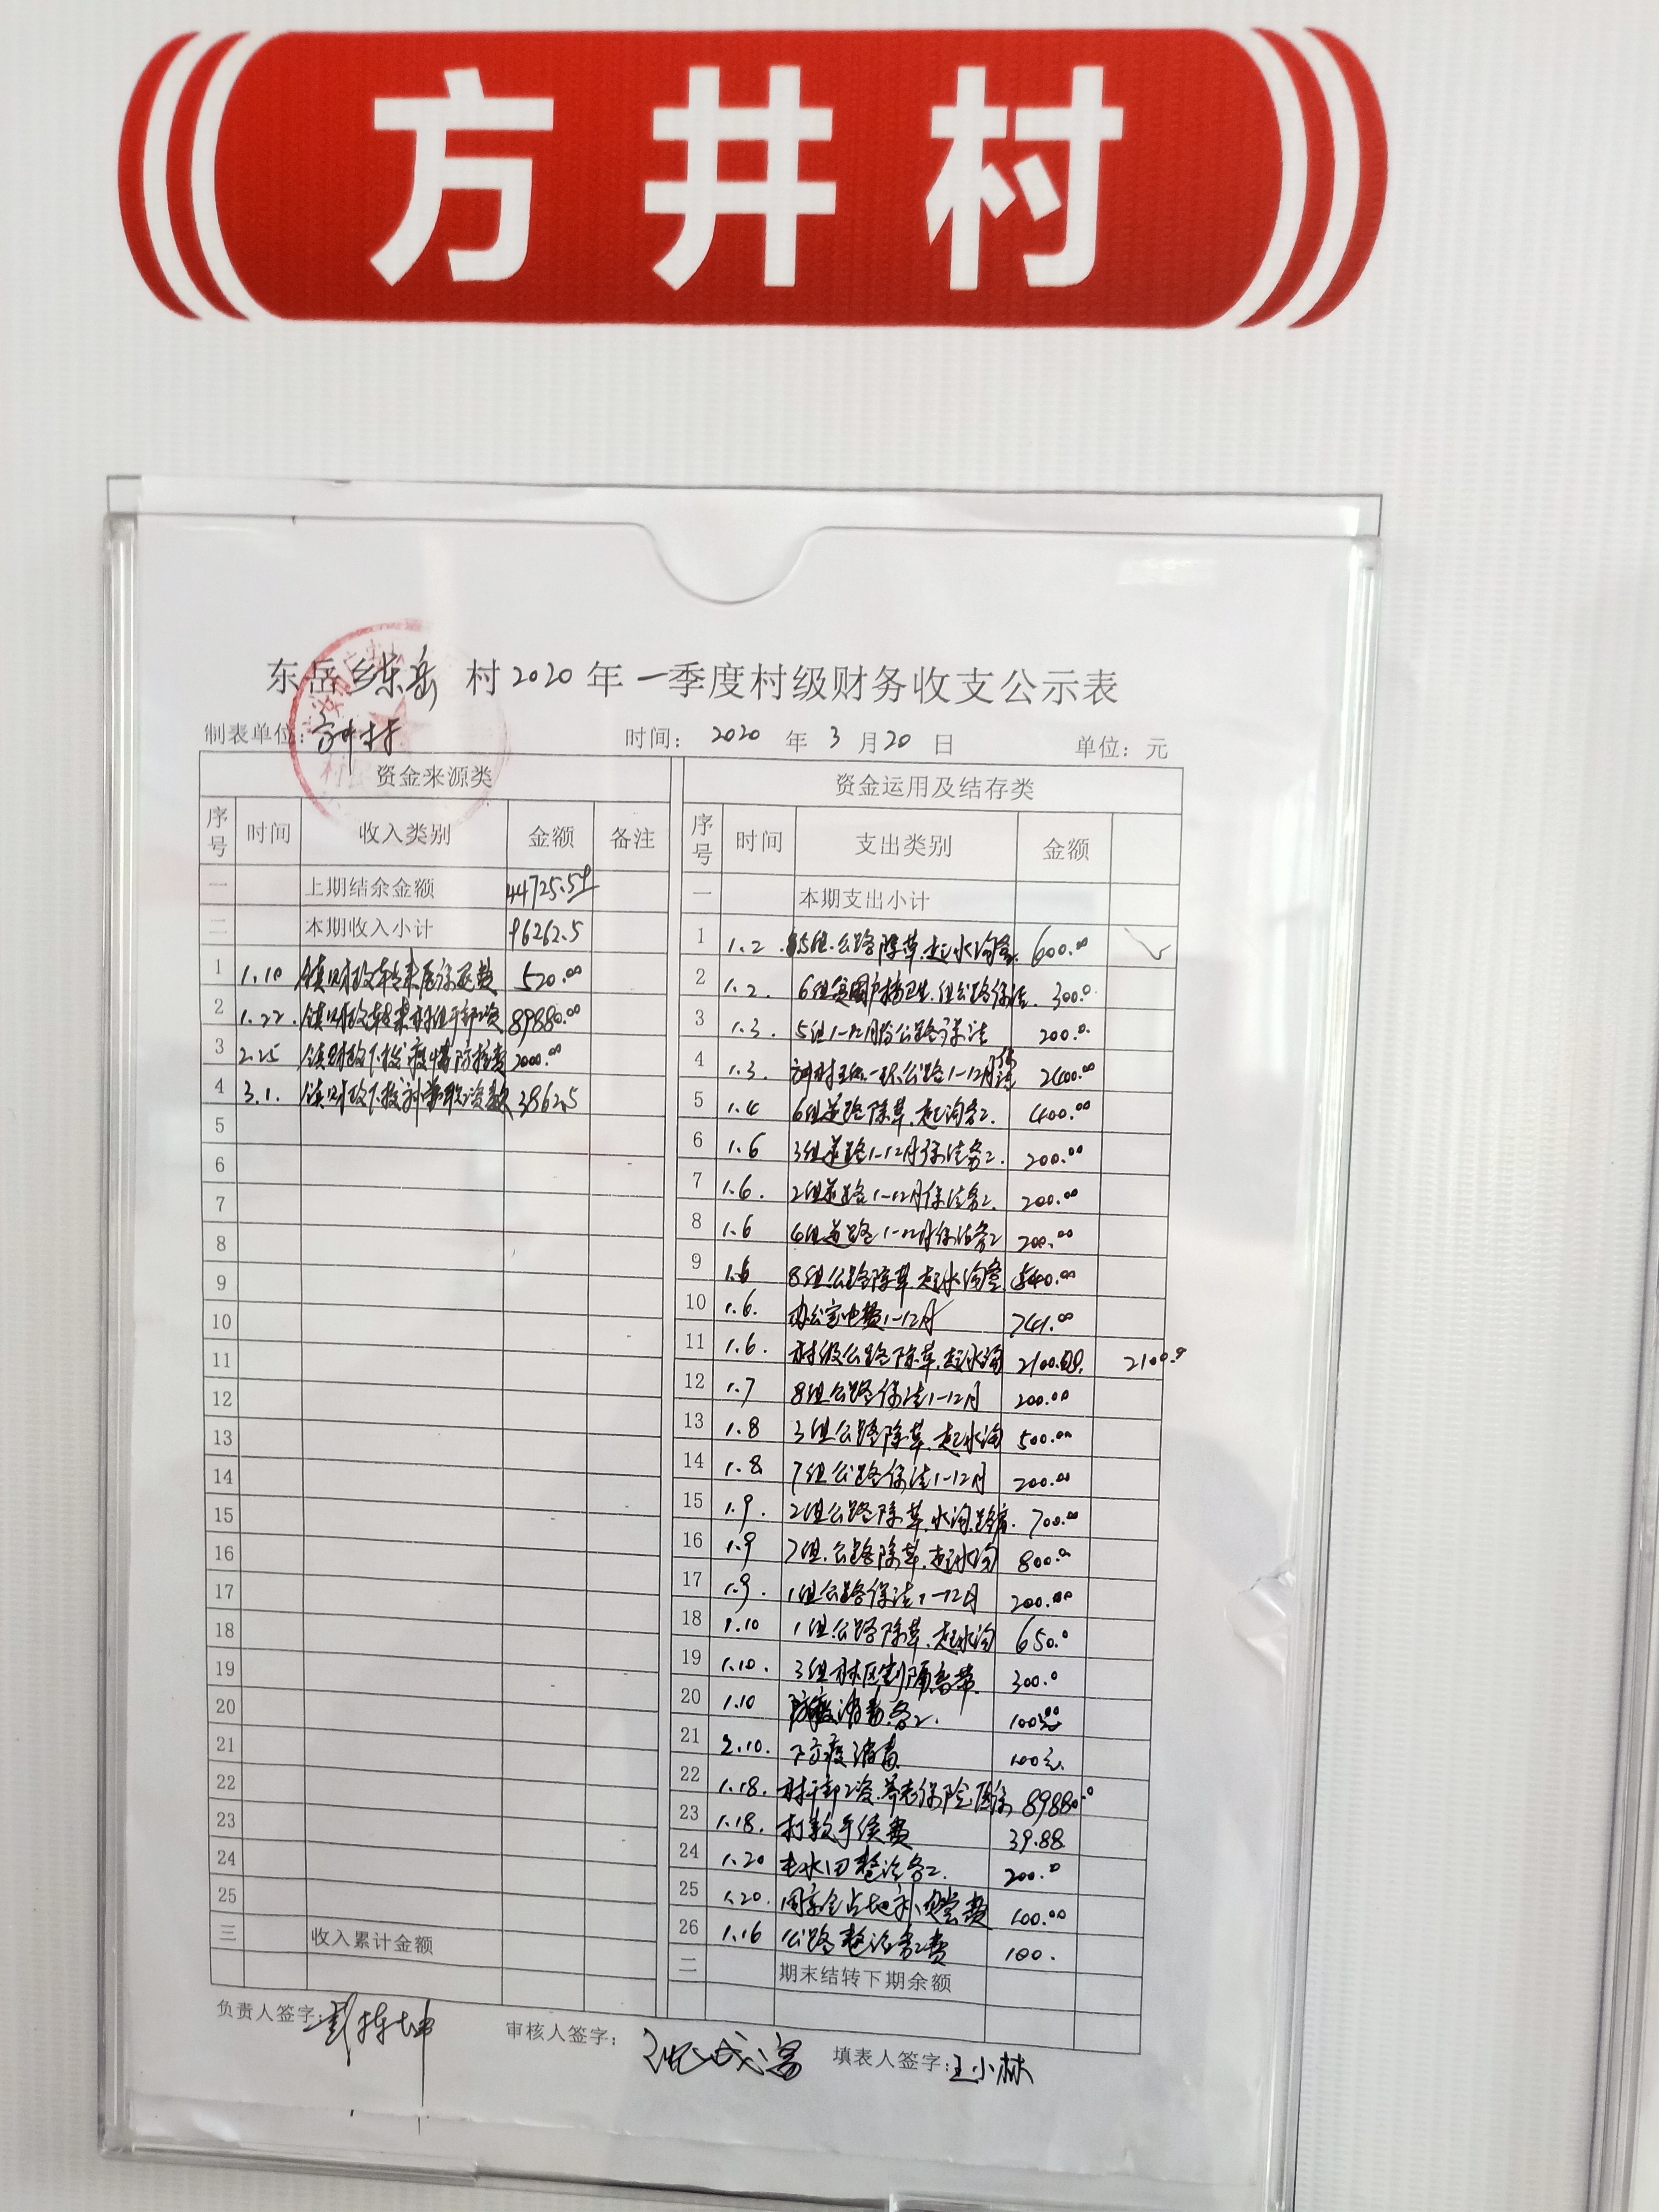 方井村
东岳乡东岳 村2020年一季度村级财务收支公示表
制表单位：方井村 时间： 2020 年 3 月 20 日 单位：元
资金来源类 资金运用及结存类
序号 时间 收入类别 金额 备注 序号 时间 支出类别 金额
一 上期结余金额 44725.59 一 本期支出小计
二 本期收入小计 96262.5 1 1.2 5组.公路除草.起水沟 600.00
1 1.10 镇财政转来医保 费 520.00 2 1.2. 6组 卫生.组公路保洁. 300.0
2 1.22. 镇财政转来村组干部工资 89880.00 3 1.3. 5组1-12月份公路保洁 200.0
3 2.25 镇财政下拨疫情防控费 2000.00 4 1.3. 方井村 公路1-12月保洁 2400.00
4 3.1. 镇财政下拨 款 3862.5 5 1.4 6组道路除草.起沟务工. 400.00
5 6 1.6 3组道路1-12月保洁务工. 200.00
6 7 1.6. 2组道路1-12月保洁务工. 200.00
7 8 1.6 4组道路1-12月保洁务工 200.00
8 9 1.6 8组公路除草.起水沟 540.00
9 10 1.6. 办公室电费1-12月 741.00
10 11 1.6. 村级公路除草.起水沟 2100.00. 2100.0
11 12 1.7 8组公路保洁1-12月 200.00
12 13 1.8 3组公路除草.起水沟 500.00
13 14 1.8. 7组公路保洁1-12月 200.00
14 15 1.9. 2组公路除草.水沟. 700.00
15 16 1.9 7组.公路除草.起水沟 800.0
16 17 1.9. 1组公路保洁1-12月 200.00
17 18 1.10 1组公路除草.起水沟 650.0
18 19 1.10. 3组林区割隔离带. 300.0
19 20 1.10 防疫消毒务工. 100元
20 21 2.10. 下方疫消毒 100元.
21 22 1.18. 村干部工资.养老保险.医保 89880.0
22 23 1.18. 打款手续费 39.88
23 24 1.20 整治务工. 200.0
24 25 1.20. 周 占地补偿费 100.00
25 26 1.16 公路整治务工费 100.
三 收入累计金额 二 期末结转下期余额
负责人签字： 审核人签字： 填表人签字：王小林